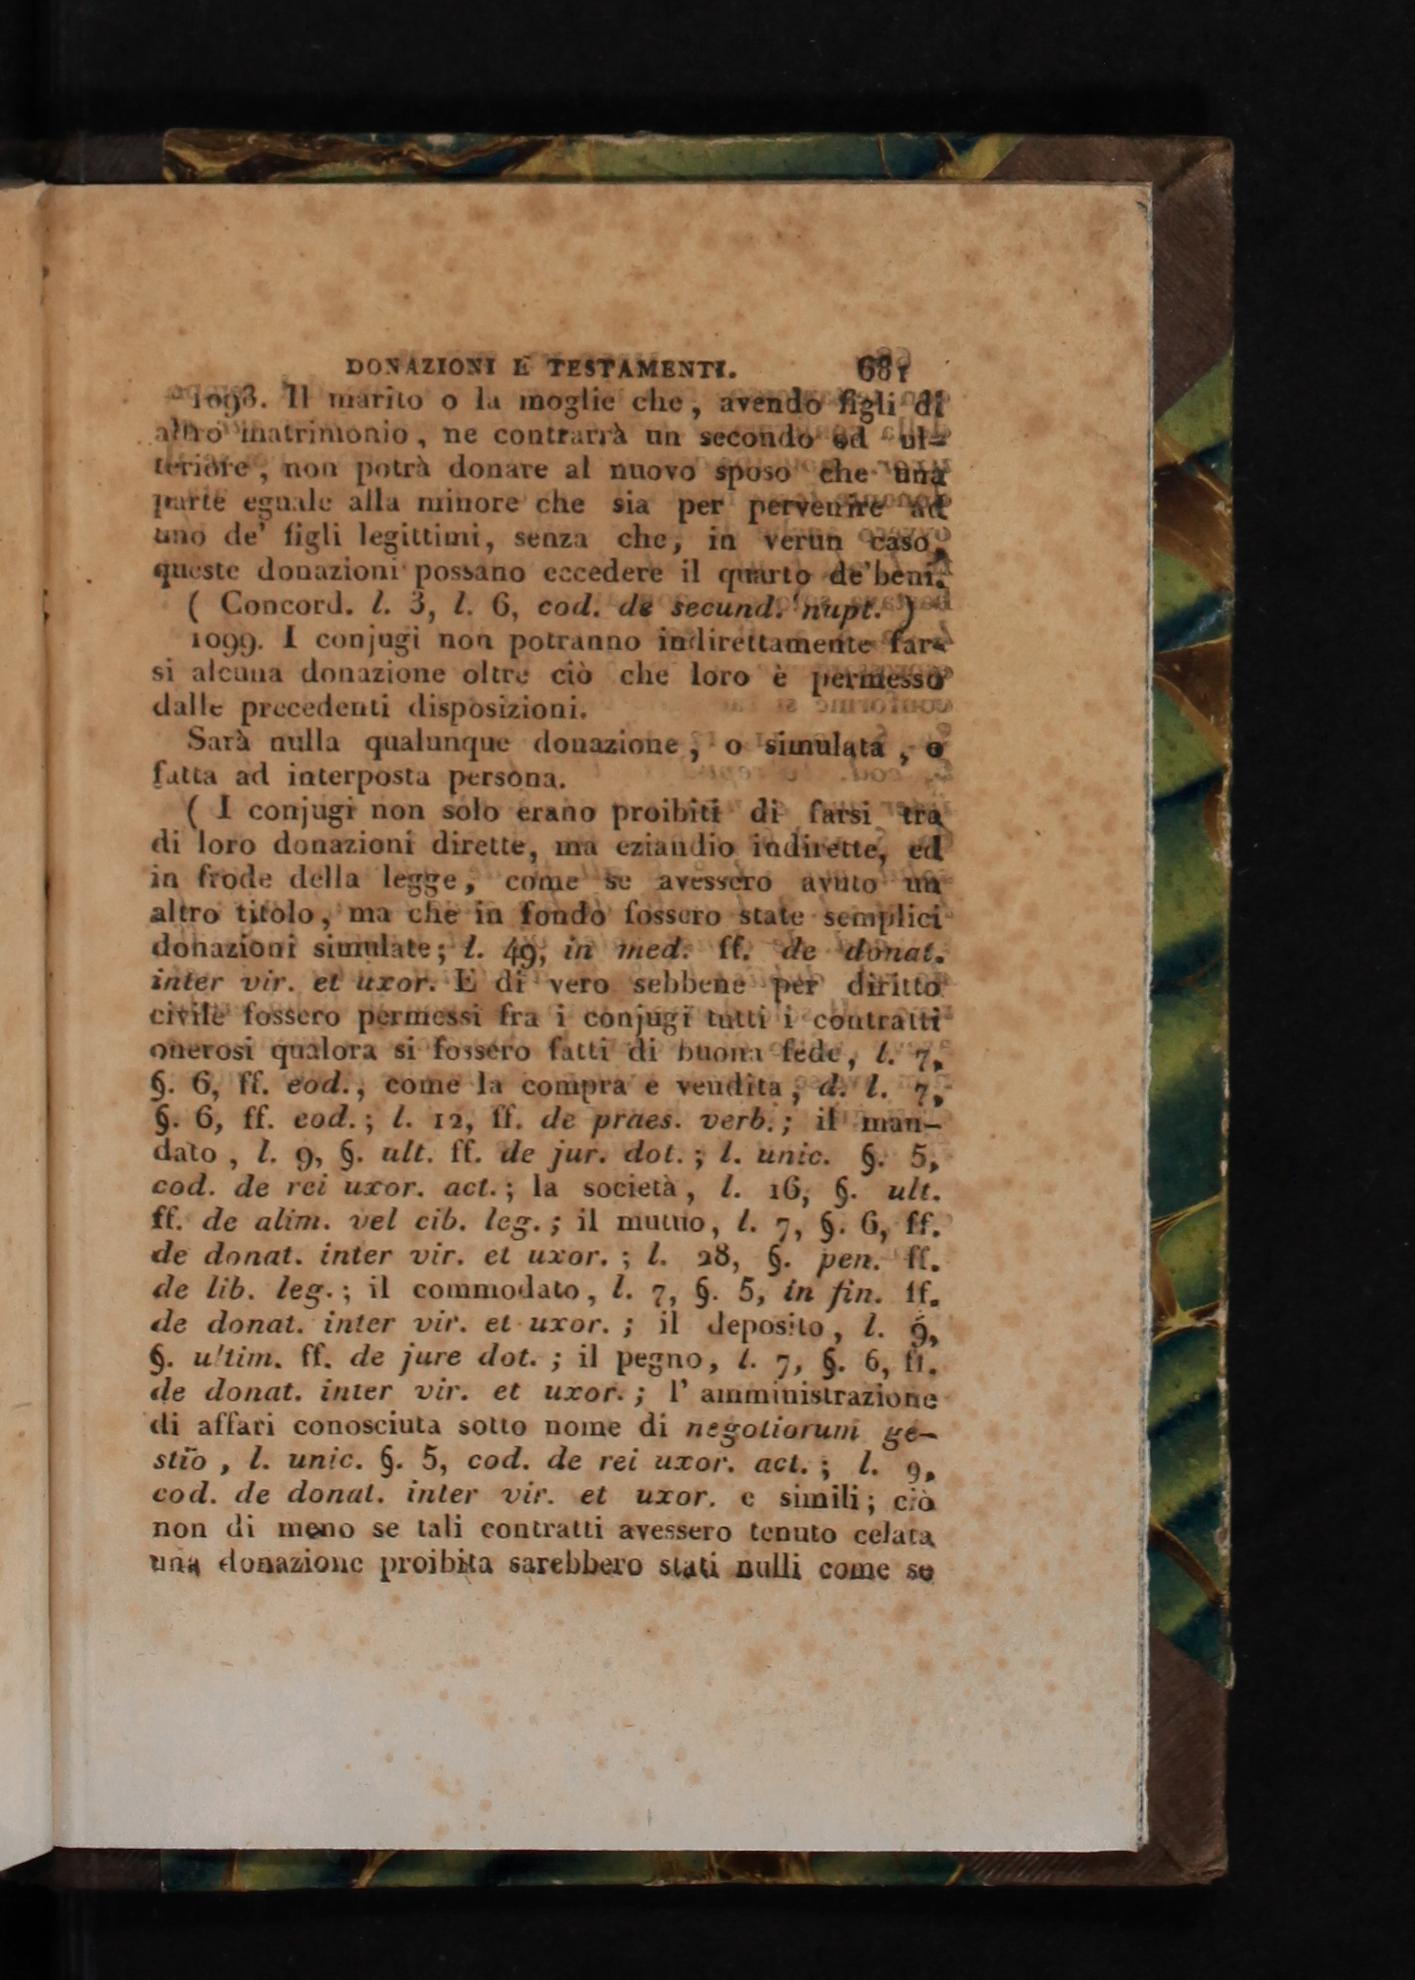 DONAZIONI E TESTAMENTI. 681
1098. Il marito o la moglie che, avendo figli di
altro matrimonio, ne contrarrà un secondo ed ul-
teriore, non potrà donare al nuovo sposo che una
parte eguale alla minore che sia per pervenire ad
uno de' figli legittimi, senza che, in verun caso,
queste donazioni possano eccedere il quarto de' beni.
( Concord. l. 3, l. 6, cod. de secund. nupt. )
1099. I conjugi non potranno indirettamente far-
si alcuna donazione oltre ciò che loro è permesso
dalle precedenti disposizioni.
Sarà nulla qualunque donazione, o simulata, o
fatta ad interposta persona.
( I conjugi non solo erano proibiti di farsi tra
di loro donazioni dirette, ma eziandio indirette, ed
in frode della legge, come se avessero avuto un
altro titolo, ma che in fondo fossero state semplici
donazioni simulate; l. 49, in med. ff. de donat.
inter vir. et uxor. E di vero sebbene per diritto
civile fossero permessi fra i conjugi tutti i contratti
onerosi qualora si fossero fatti di buona fede, l. 7,
§. 6, ff. eod., come la compra e vendita, d. l. 7,
§. 6, ff. eod.; l. 12, ff. de praes. verb.; il man-
dato, l. 9, §. ult. ff. de jur. dot.; l. unic. §. 5,
cod. de rei uxor. act.; la società, l. 16, §. ult.
ff. de alim. vel cib. leg.; il mutuo, l. 7, §. 6, ff.
de donat. inter vir. et uxor.; l. 28, §. pen. ff.
de lib. leg.; il commodato, l. 7, §. 5, in fin. ff.
de donat. inter vir. et uxor.; il deposito, l. 9,
§. ultim. ff. de jure dot.; il pegno, l. 7, §. 6, ff.
de donat. inter vir. et uxor.; l' amministrazione
di affari conosciuta sotto nome di negotiorum ge-
stio, l. unic. §. 5, cod. de rei uxor. act.; l. 9,
cod. de donat. inter vir. et uxor. e simili; ciò
non di meno se tali contratti avessero tenuto celata
una donazione proibita sarebbero stati nulli come se